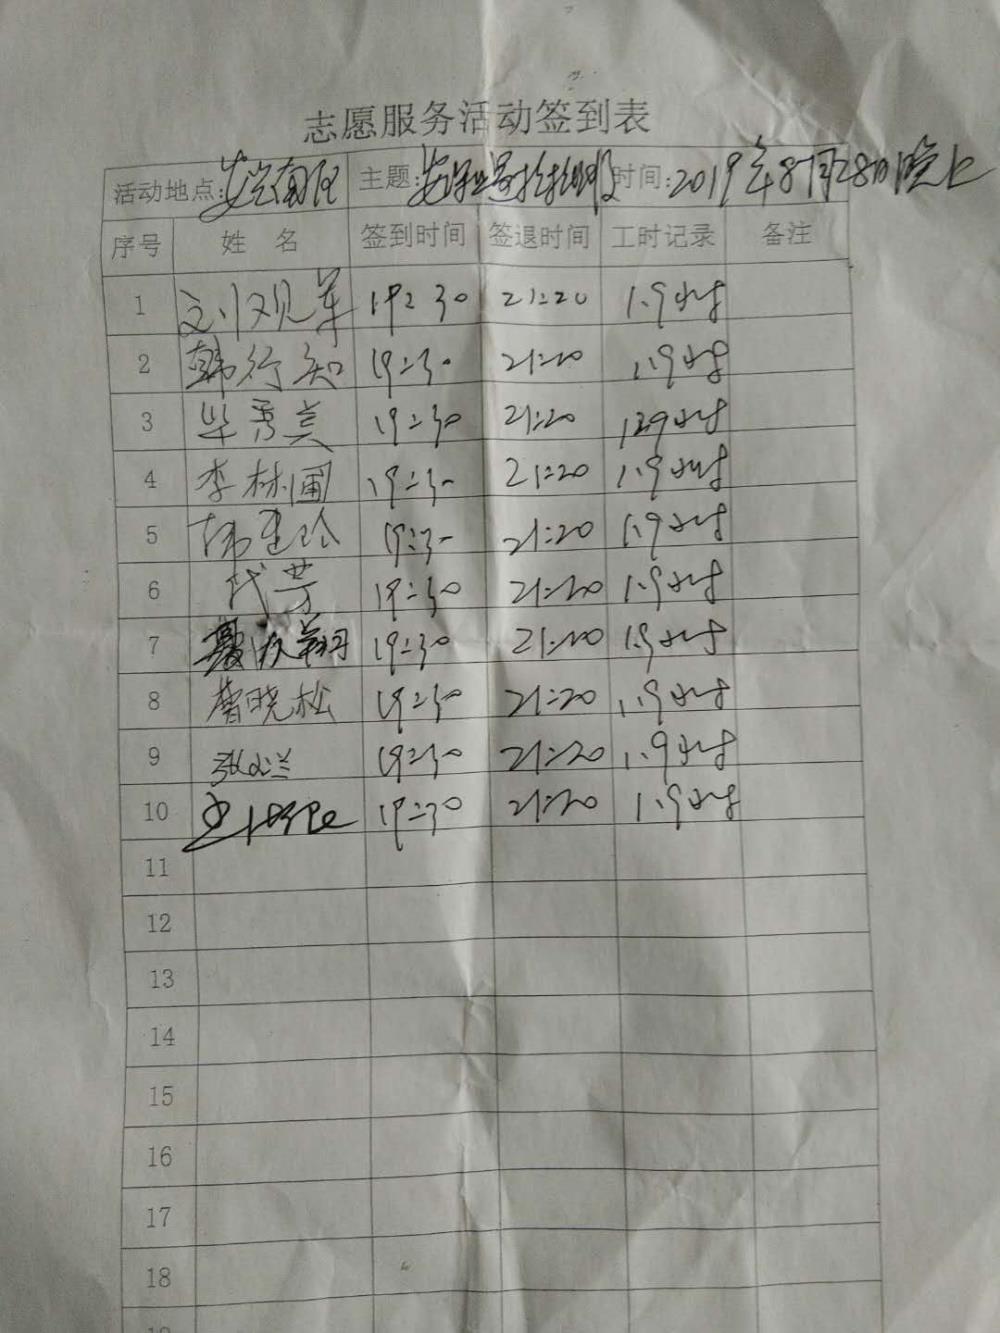 志愿服务活动签到表
活动地点: 主题: 时间:2019年8月28日晚上
序号 姓 名 签到时间 签退时间 工时记录 备注
1 刘观军 19:30 21:20 1.9小时
2 韩行知 19:30 21:20 1.9小时
3 毕秀英 19:30 21:20 1.9小时
4 李林圃 19:30 21:20 1.9小时
5 19:30 21:20 1.9小时
6 代芳 19:30 21:20 1.9小时
7 19:30 21:20 1.9小时
8 曹晓松 19:30 21:20 1.9小时
9 19:30 21:20 1.9小时
10 19:30 21:20 1.9小时
11
12
13
14
15
16
17
18